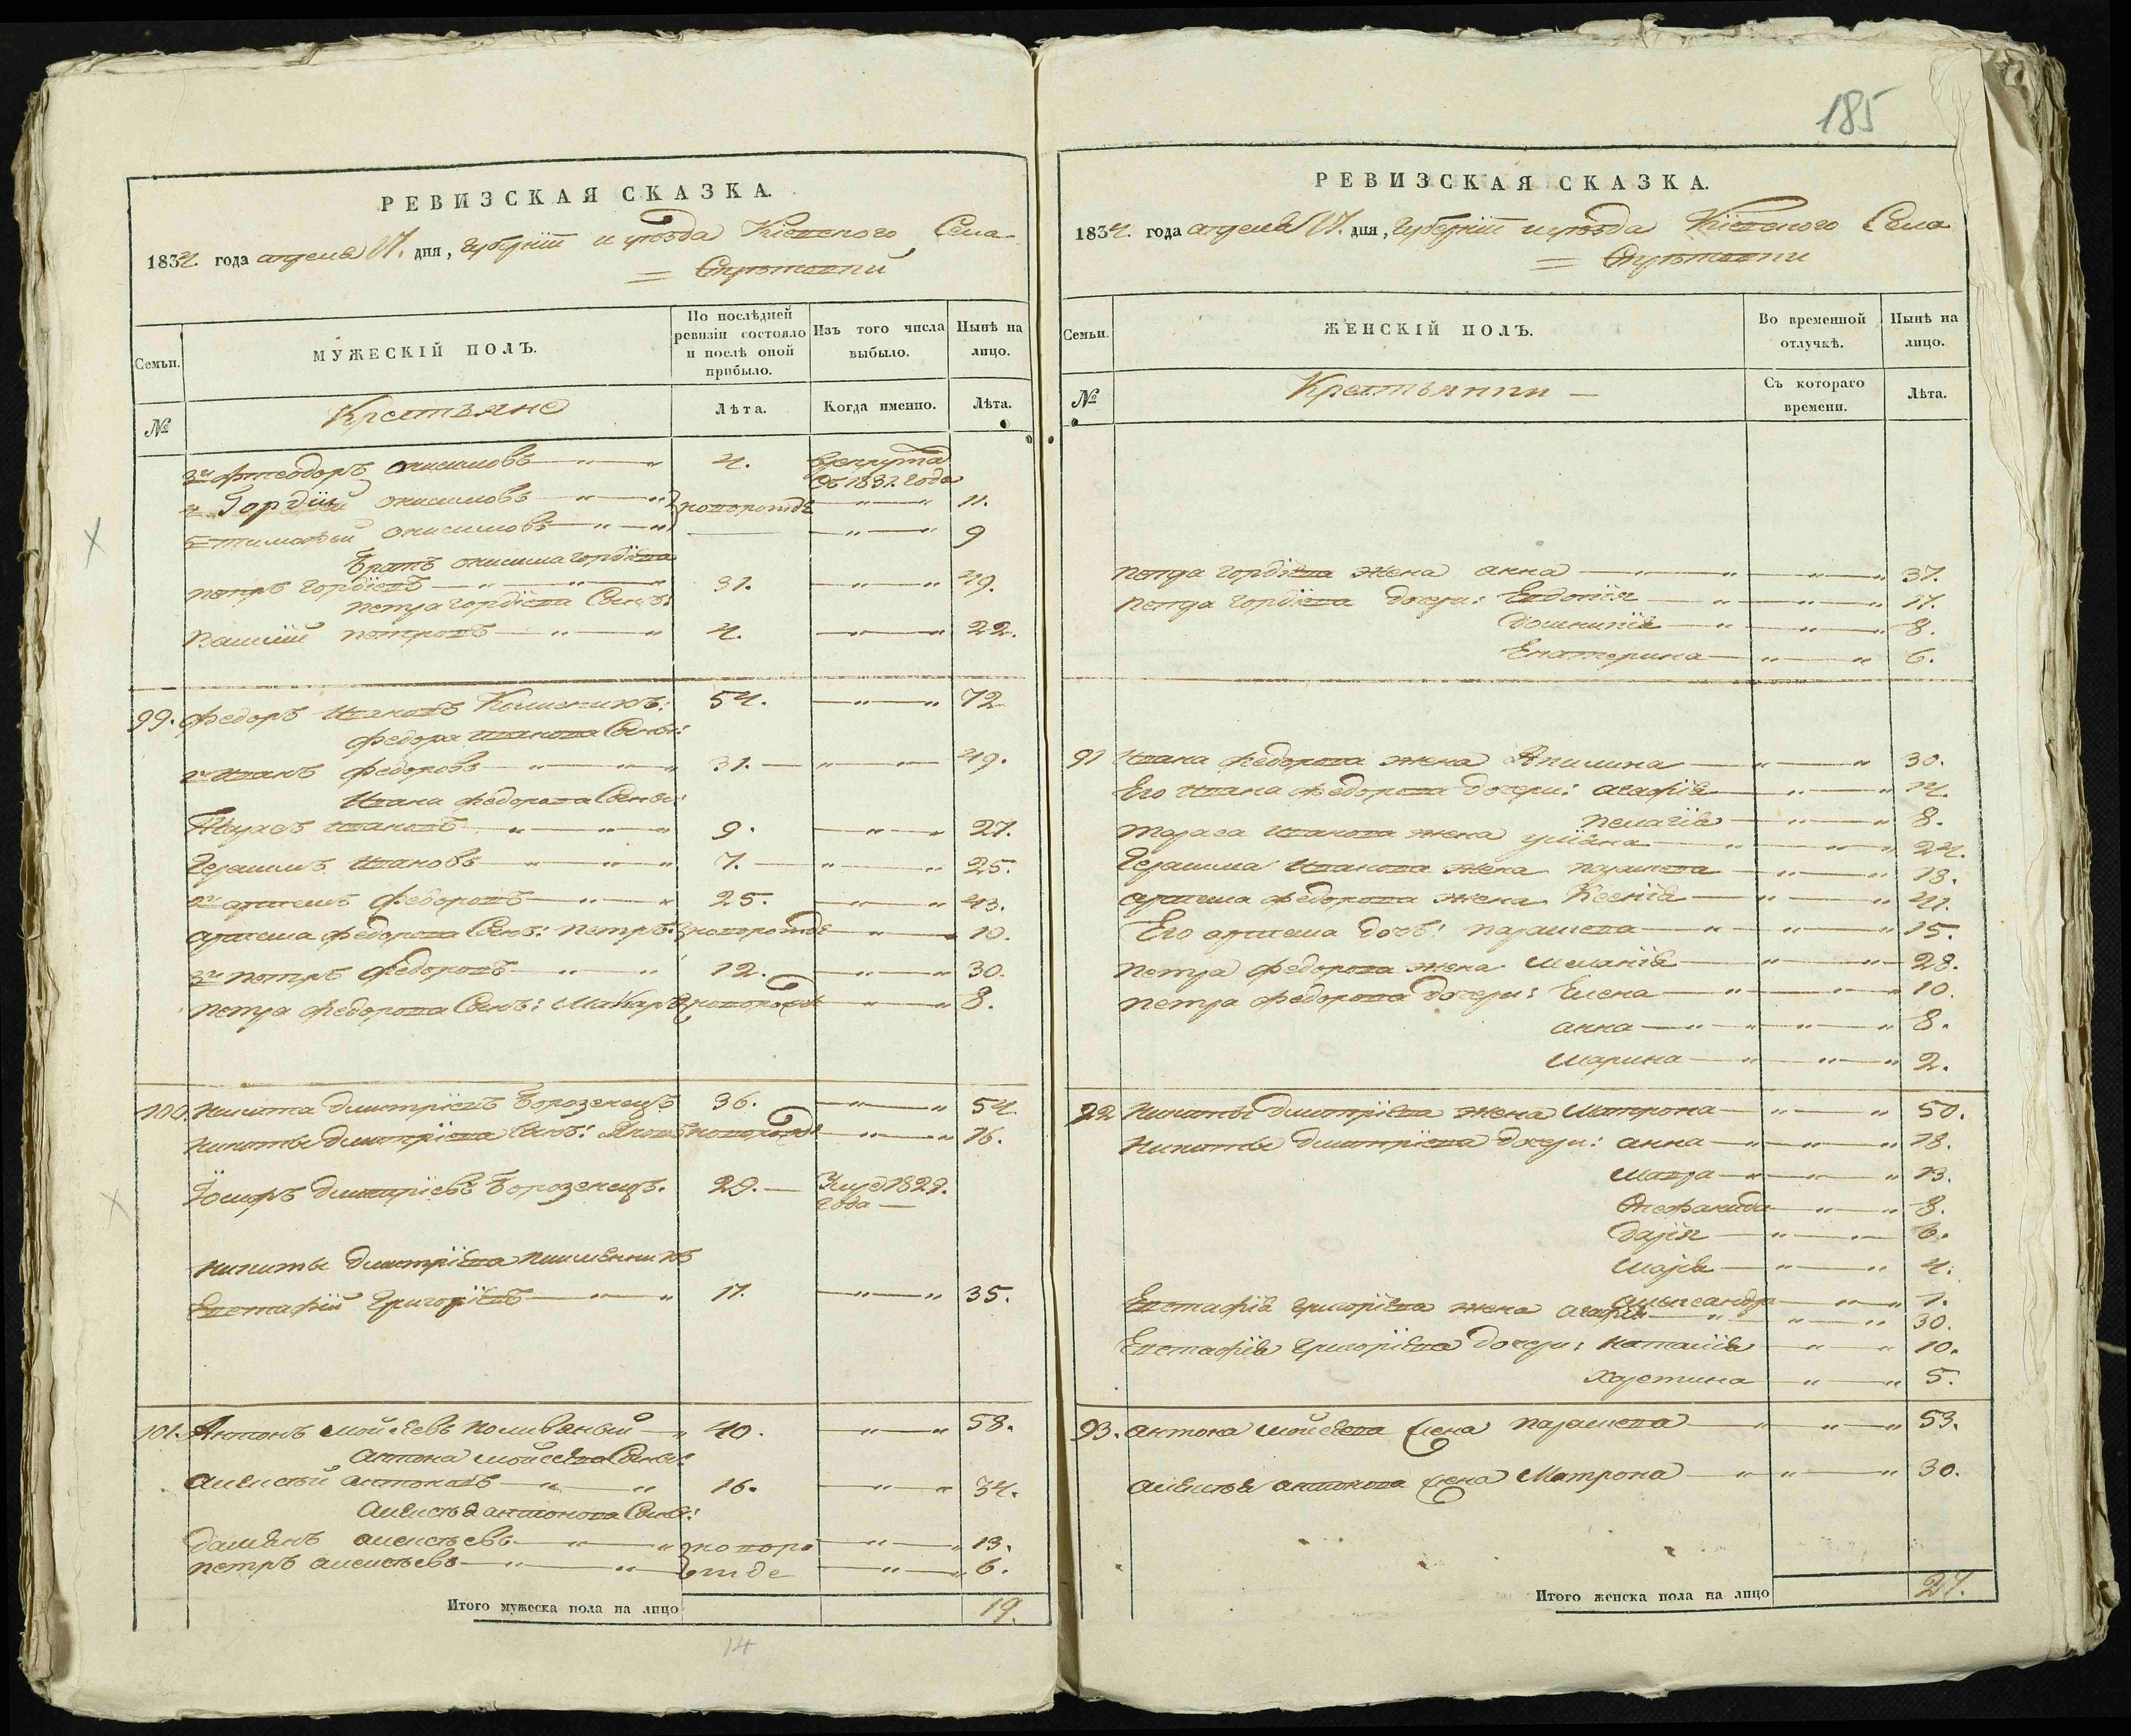 185
РЕВИЗСКАЯ СКАЗКА.
1834. года апреля 17. дня, Губернии и уезда Кіевского Села
Семьи.
МУЖЕСКІЙ ПОЛЪ.
По послѣдней ревизіи состояло и послѣ оной прибыло.
Изъ того числа выбыло.
Нынѣ на лицо.
№
Крестьяне
Лѣта.
Когда именно.
Лѣта.
3й Феодоръ онисимовъ 4. рекрута
въ 1831. года
4 Гордій онисимовъ новорожде 11.
5 тимофей онисимовъ 9
братъ онисима гордіева
петръ гордіевъ 31. 49.
петра гордіева Сынъ:
Василій петровъ 4. 22.
99. федоръ Ивановъ 54. 72
федора Иванова Сыны:
1й Иванъ федоровъ 31. 49.
Ивана федорова Сыны:
Тарасъ Ивановъ 9. 27.
Герасимъ Ивановъ 7. 25.
2й артемъ федоровъ 25. 43.
артема федорова Сынъ: петръ новорожде 10.
3й петръ федоровъ 12. 30.
петра федорова Сынъ: Макаръ новорожде 8.
100. никита дмитріевъ Борозенецъ 36. 54
никиты дмитріева Сынъ: Яковъ новорожде 16.
Іосифъ дмитріевъ Борозенецъ. 29. Умре 1829.
года
никиты дмитріева племѣнникъ
Евстафій григоріевъ 17. 35.
101. Антонъ мойсѣевъ поливаный 40. 58.
антона мойсѣева Сынъ:
алѣксѣй антоновъ 16. 34.
алѣксѣя антонова Сыны:
дамѣнъ алексѣевъ новоро 13.
петръ алексѣевъ жде 6.
Итого мужеска пола на лицо 19.
14
РЕВИЗСКАЯ СКАЗКА.
1834. года апреля 17. дня, Губерніи и уѣзда Кіевского Села
Семьи.
ЖЕНСКІЙ ПОЛЪ.
Во временной отлучкѣ.
Нынѣ на лицо.
№
Крестьянки
Съ котораго времени.
Лѣта.
петра гордіева жена анна 37.
петра гордіева дочери: Евдокія 17.
домникія 8.
Екатерина 6.
91 Ивана федорова жена Акилина 30.
Его Ивана федорова дочери: агафія 14.
пелагія 8.
тараса Иванова жена уліяна 24.
Герасима Иванова жена параскева 18.
артема федорова жена Ксенія 41.
Его артема дочь: параскева 15.
петра федорова жена Меланія 28.
петра федорова дочери: Елена 10.
анна 8.
Марина 2.
92 никиты дмитріева жена Матрона 50.
никиты дмитріева дочери: анна 18.
Мавра 13.
Стефанида 8.
дарія 6.
Марія 4.
александра 1.
Евстафія григоріева жена агафія 30.
Евстафія григоріева дочери: наталія 10.
Харстина 5.
93. антона мойсѣева жена параскева 53.
алѣксѣя антонова жена Матрона 30.
Итого женска пола на лицо 27.